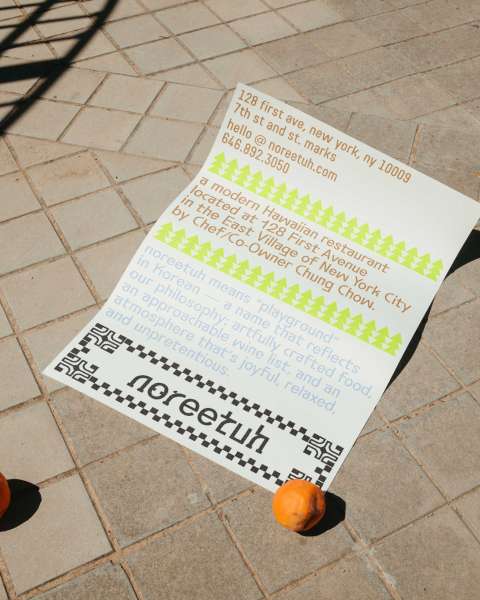 128 first ave, new york, ny 10009
7th st and st. marks
hello @ noreetuh.com
646.892.3050
a modern Hawaiian restaurant
located at 128 First Avenue
in the East Village of New York City
by Chef/Co-Owner Chung Chow.
noreetuh means "playground"
in Korean — a name that reflects
our philosophy: artfully crafted food,
an approachable wine list, and an
atmosphere that's joyful, relaxed,
and unpretentious.
noreetuh